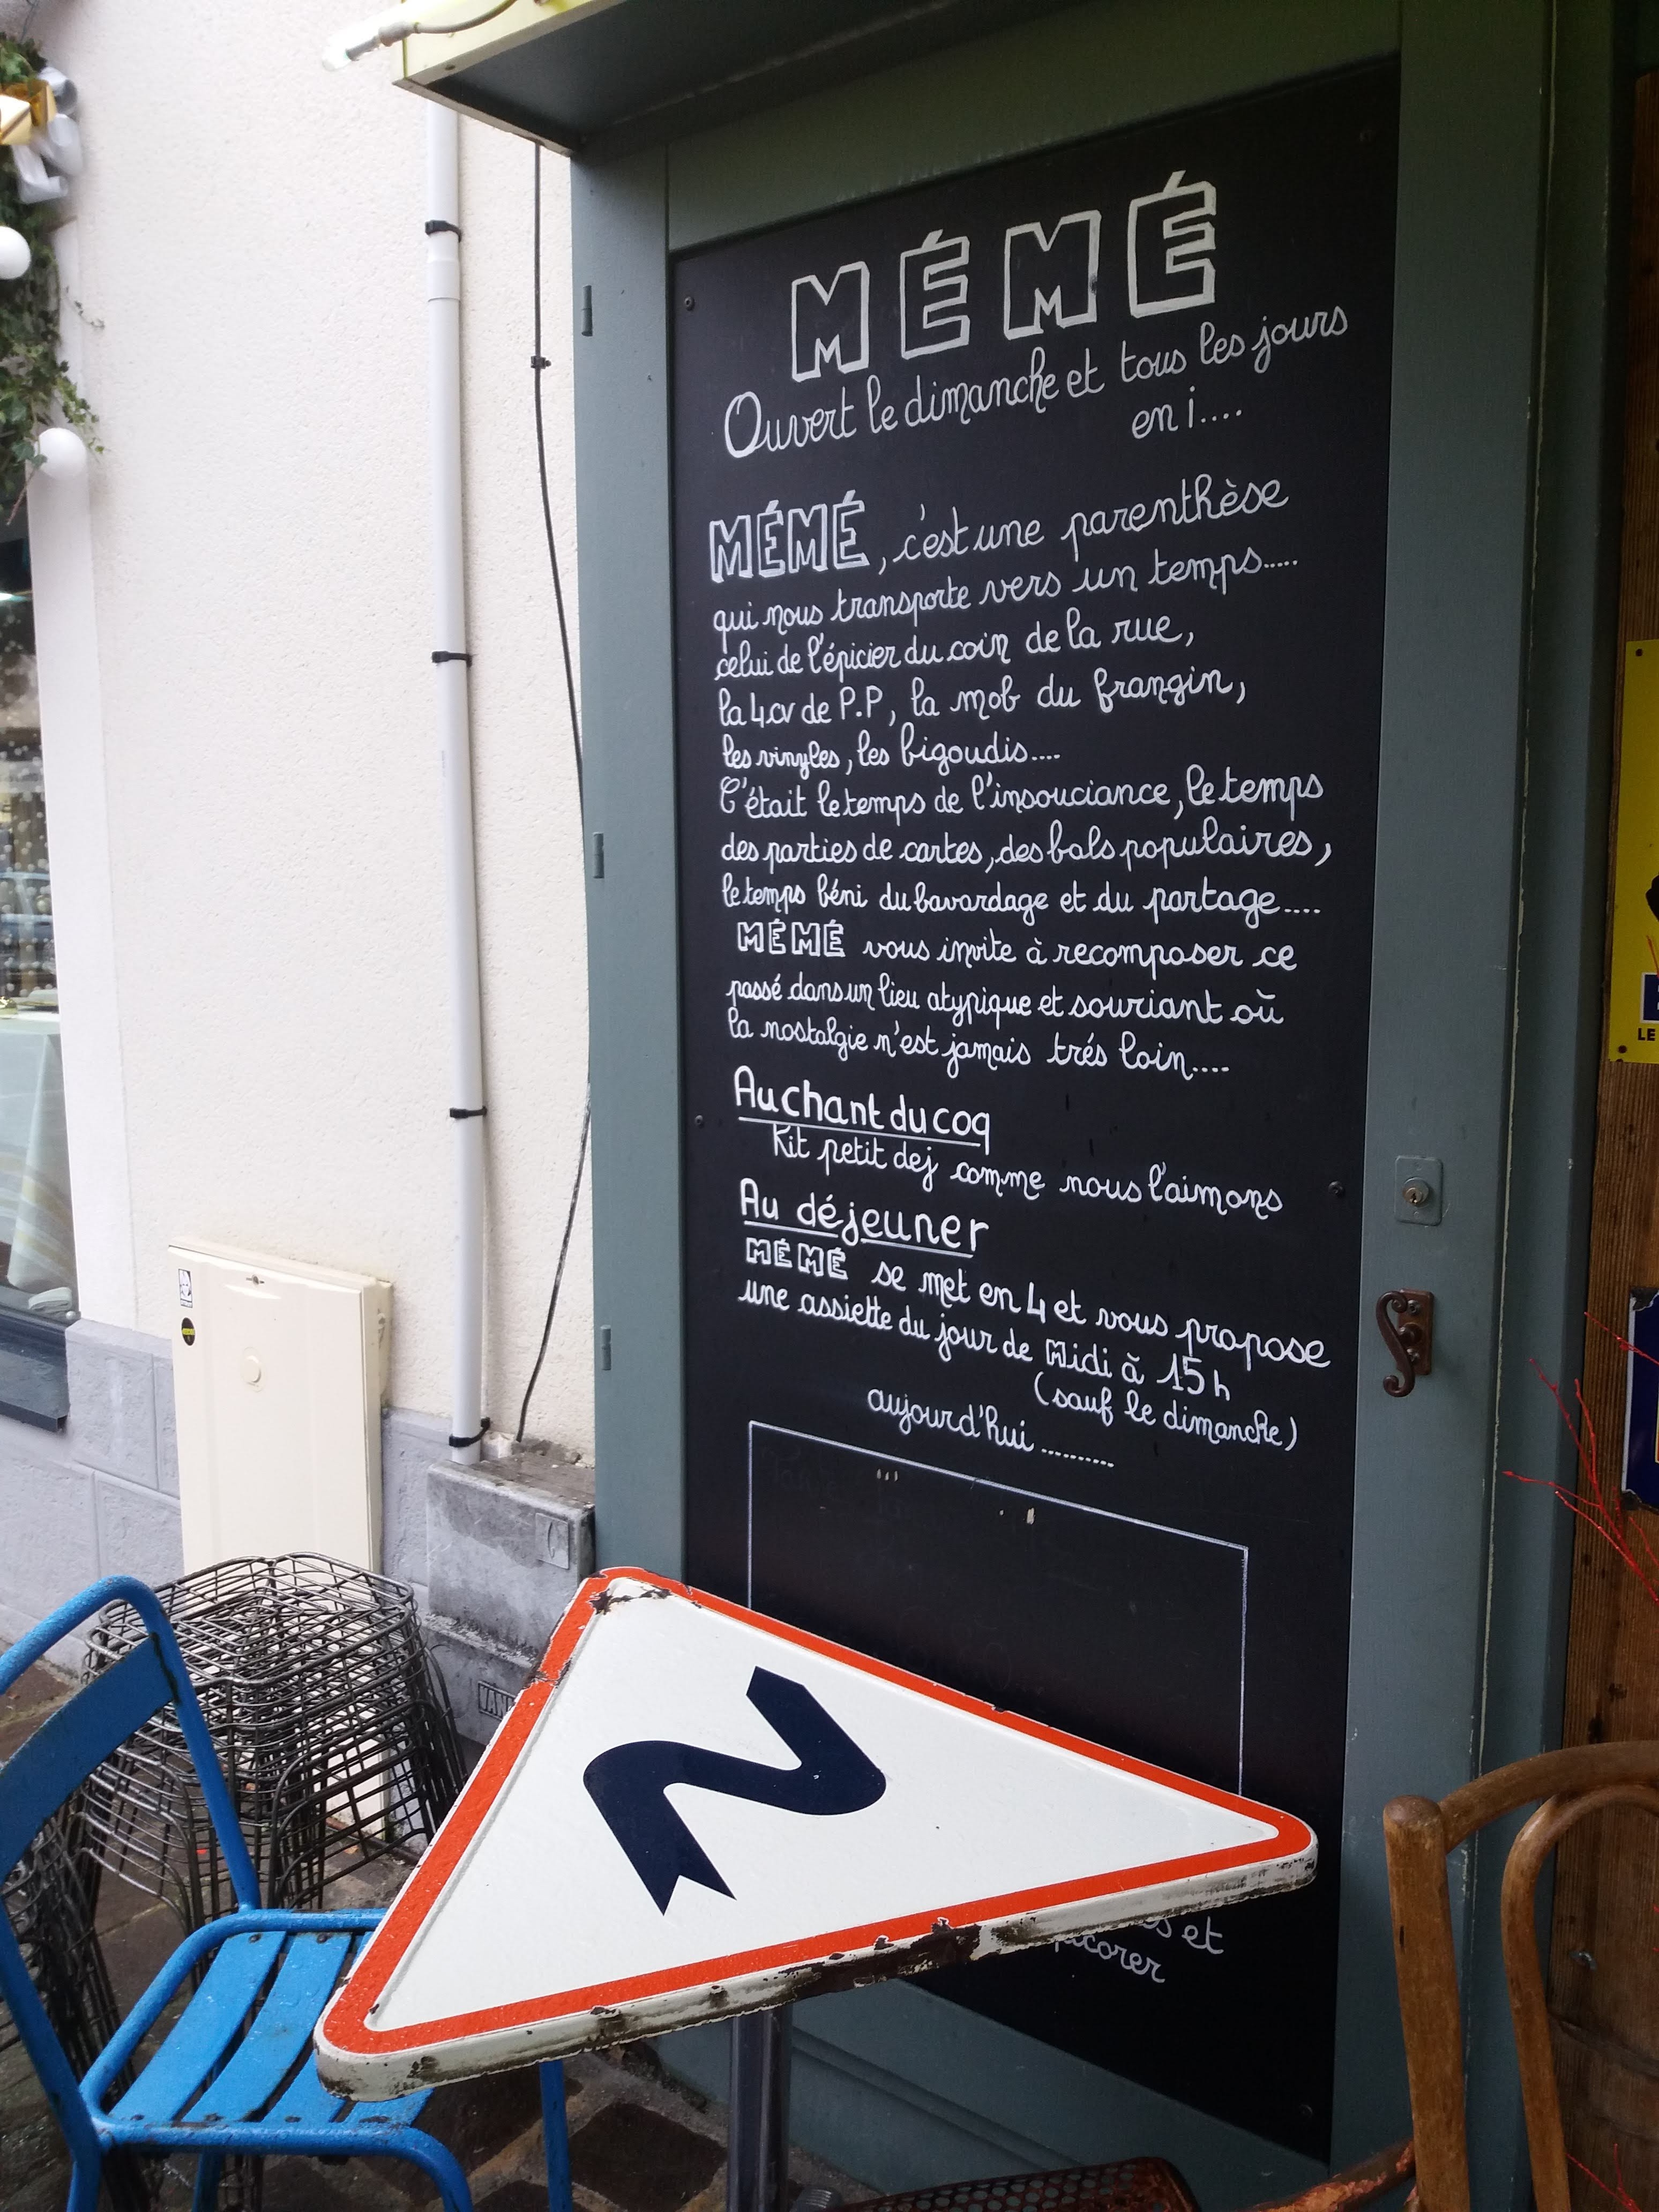 MÉMÉ
Ouvert le dimanche et tous les jours
en i....
MÉMÉ, c'est une parenthèse
qui nous transporte vers un temps.....
celui de l'épicier du coin de la rue,
la 4cv de P.P, la mob du frangin,
les vinyles, les bigoudis....
C'était le temps de l'insouciance, le temps
des parties de cartes, des bals populaires,
le temps béni du bavardage et du partage....
MÉMÉ vous invite à recomposer ce
passé dans un lieu atypique et souriant où
la nostalgie n'est jamais trés loin....
Au chant du coq
Kit petit dej comme nous l'aimons
Au déjeuner
MÉMÉ se met en 4 et vous propose
une assiette du jour de Midi à 15h
(sauf le dimanche)
aujourd'hui ..........
et
picorer
LE